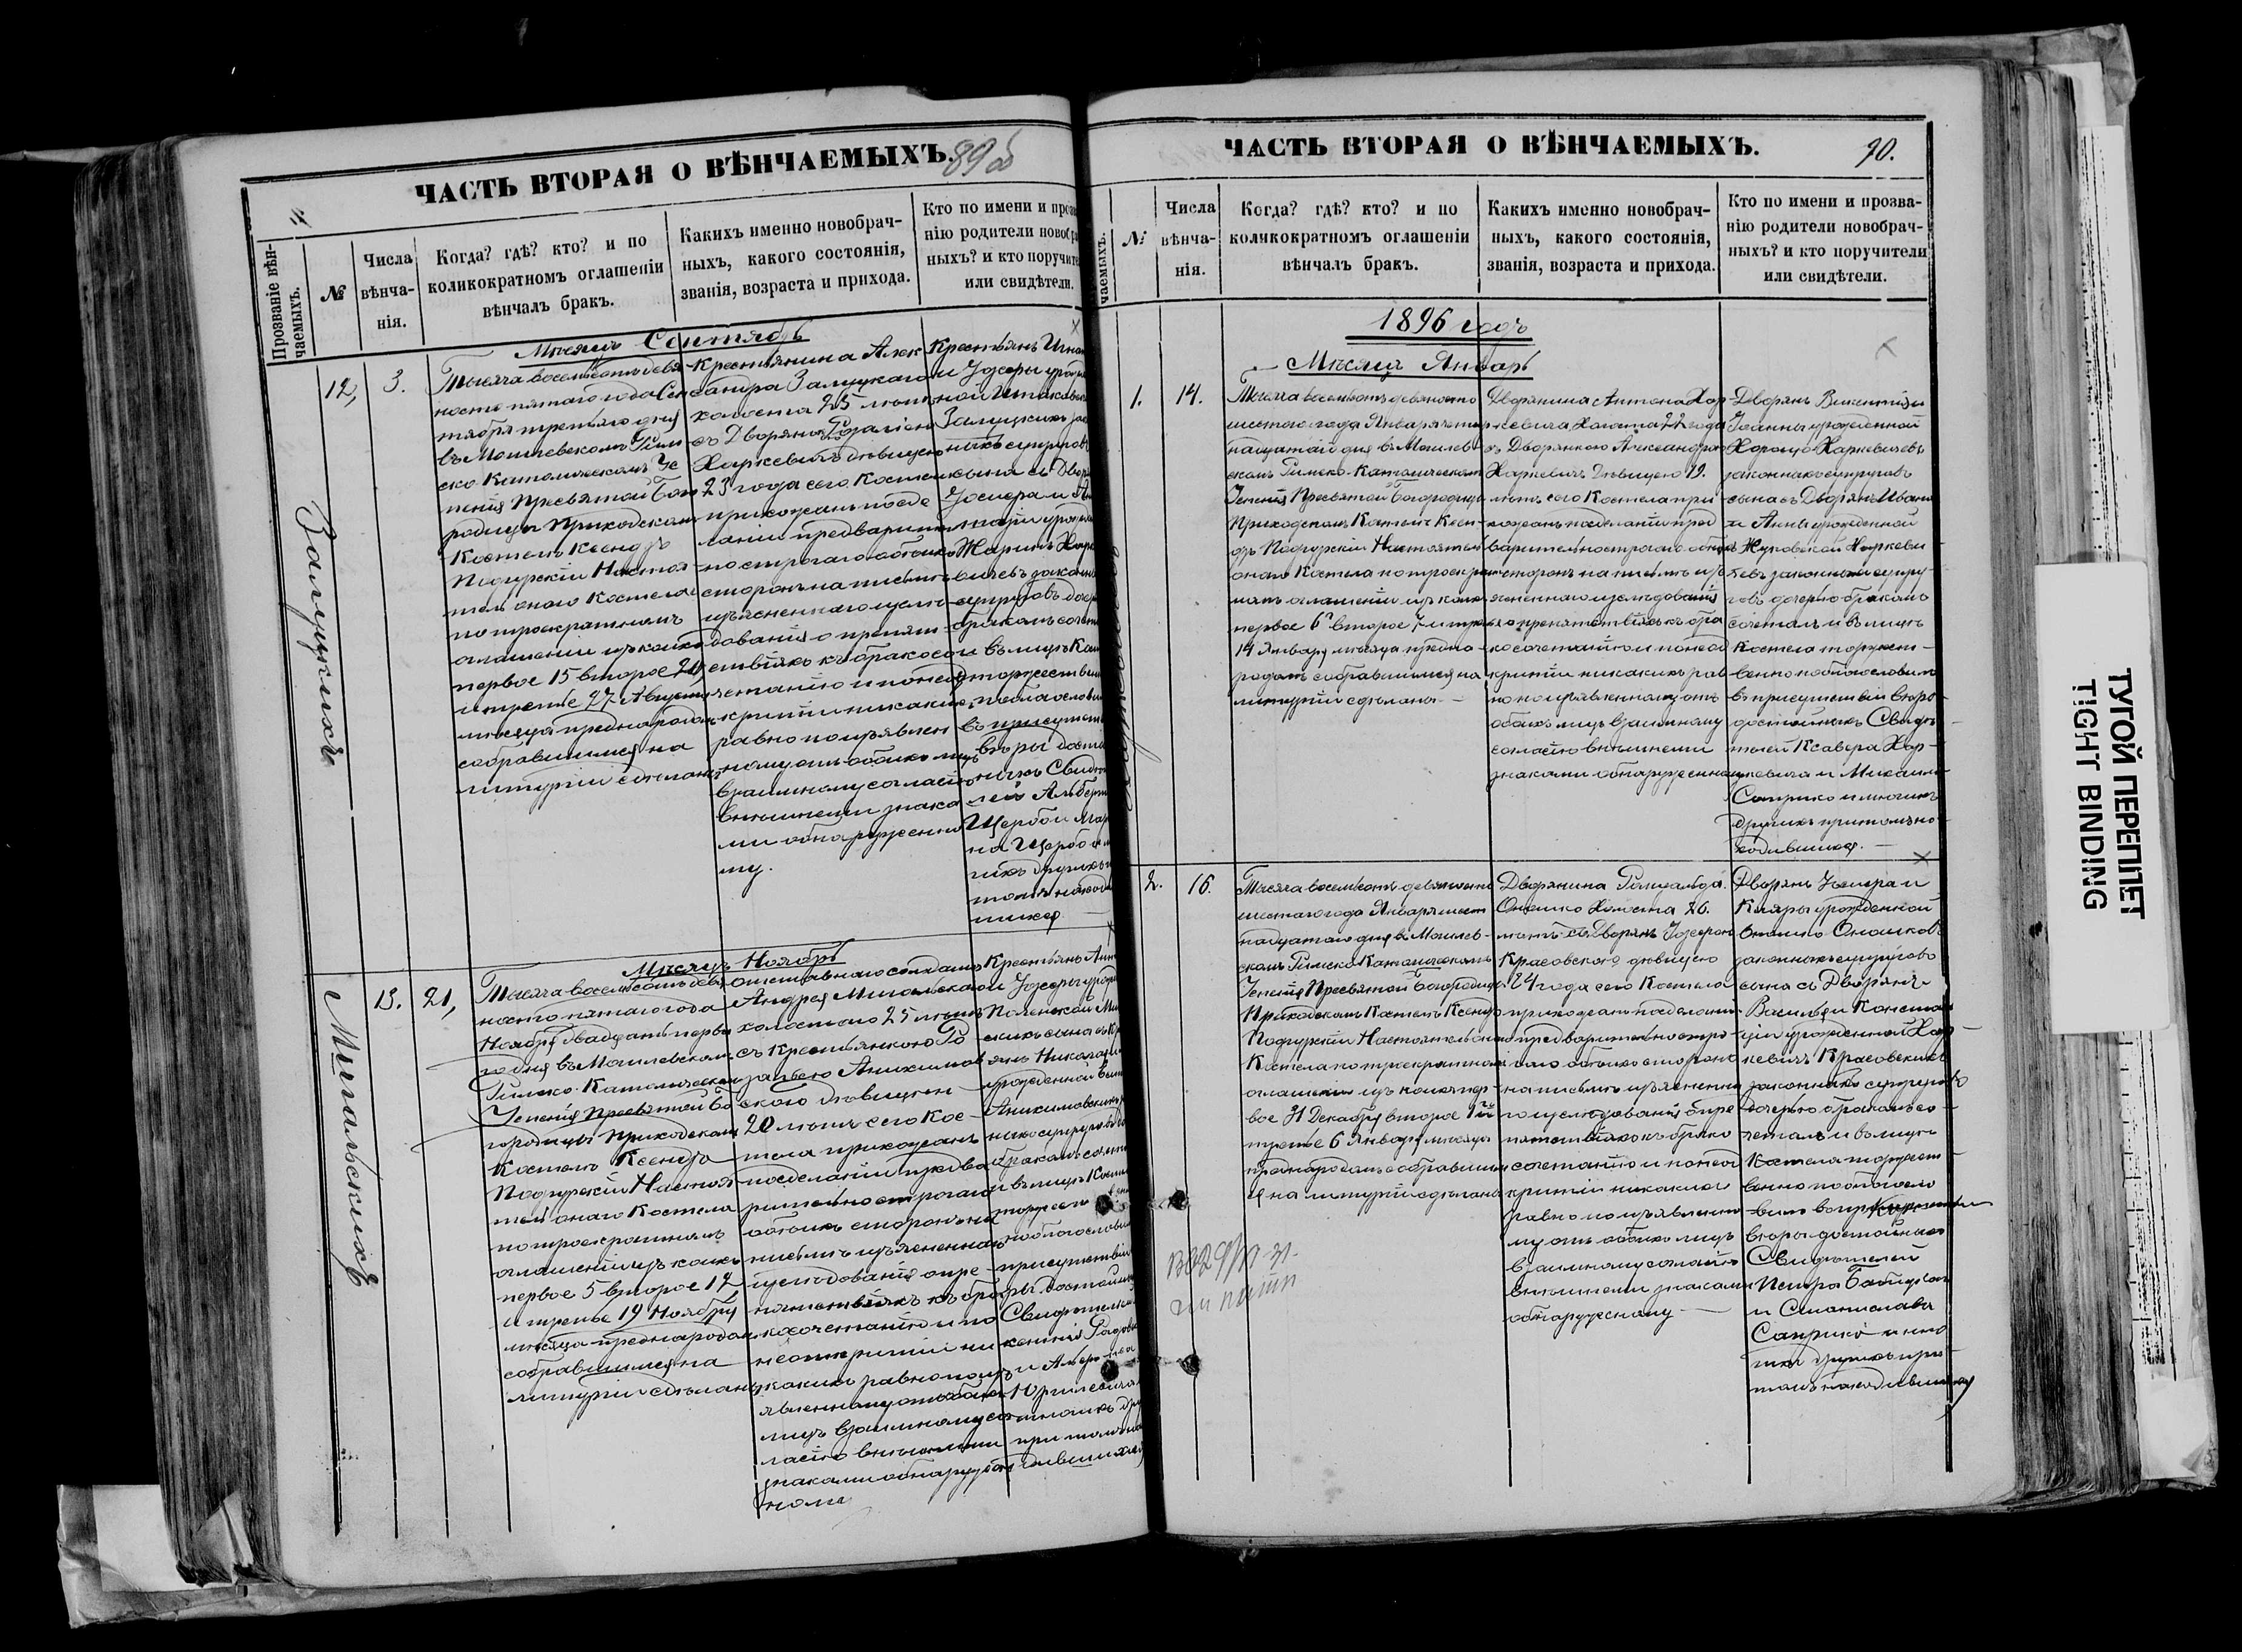 ЧАСТЬ ВТОРАЯ О ВѢНЧАЕМЫХЪ.
89об
Прозваніе вѣнчаемыхъ.
№
Числа
вѣнча-
нія.
Когда? гдѣ? кто? и по
коликократномъ оглашеніи
вѣнчалъ бракъ.
Какихъ именно новобрач-
ныхъ, какого состоянія,
званія, возраста и прихода.
Кто по имени и прозва
нію родители новобра
ныхъ? и кто поручите
или свидѣтели.
Мѣсяцъ Сентябрь
Залуцкихъ
12,
3.
Тысяча восемьсотъ девя-
носто пятаго года Сен
тября третьяго дня
въ Могилевскомъ Рим
ско Католическомъ Ус
пенія Пресвятой Бого
родицы Приходскомъ
Костелѣ Ксендзъ
Подгурскій Настоя-
тель онаго Костела
по троекратномъ
оглашеніи изъ коихъ
первое 15 второе 20
и третіе 27 Августа
мѣсяца предъ народомъ
собравшимся на
литургіи сдѣланы
Крестьянина Алек
сандра Залуцкаго
холостаго 25 лѣтъ
съ Дворянкою
Харкевичъ дѣвицею
23 года сего Костела
прихожанъ по сдѣ
ланіи предварител
но строгаго обоихъ
сторонъ на письмѣ
изъясненнаго изслѣ
дованія о препят-
ствіяхъ къ бракосо
четанію и по неот
крытіи никакихъ
равно по изъявлен
ному отъ обоихъ лицъ
взаимному согласію
внѣшними знака
ми обнаруженно
му.
Крестьянъ
и Юзефы урож
Залуцкихъ зак
ныхъ супруговъ
сына съ Двор
Юзефа и
Харке
вичевъ законн
супруговъ доч
бракомъ сочет
и въ лицѣ Кос
торжествен
поблагослови
въ присутст
вѣры досто
ныхъ Свидѣт
лей Альберт
Щербо и Мар
на Щербо и
гихъ другихъ
томъ наход
шихся
Мѣсяцъ Ноябрь
Мигальскихъ
13.
21,
Тысяча восемьсотъ девя
носто пятаго года
Ноября двадцать перва
го дня въ Могилевском
Римско-Католическом
Успенія Пресвятой Бо
городицы Приходском
Костелѣ Ксендзъ
Подгурскій Настоя-
тель онаго Костела
по троекратномъ
оглашеніи изъ коихъ
первое 5 второе 12
и третіе 19 Ноября
мѣсяца предъ народом
собравшимся на
литургіи сдѣланы
отставнаго солдата
Андрея Мигальскаго
холостаго 25 лѣтъ
съ Крестьянкою Ро
заліею Анихимов
скою дѣвицею
20 лѣтъ сего Кос-
тела прихожанъ
по сдѣланіи предва
рительно строгаго
обоихъ сторонъ на
письмѣ изъясненнаго
изслѣдованія о пре-
пятствіяхъ къ бра
косочетанію и по
неоткрытіи ни
какихъ равно по изъ
явленному отъ обоихъ
лицъ взаимному со
гласію внѣшними
знаками обнаружен
ному
Крестьянъ
и Юзефы урожд
скихъ сына съ Кр
янъ Николая
урожденной
Анихимовскихъ
бракомъ сочет
и въ лицѣ Косте
торжествен
поблагослови
присутствіи
ры достойны
Свидѣтелей
и многихъ дру
при томъ на
ходившихся
ЧАСТЬ ВТОРАЯ О ВѢНЧАЕМЫХЪ.
90.
чаемыхъ.
№
Числа
вѣнча-
нія.
Когда? гдѣ? кто? и по
коликократномъ оглашеніи
вѣнчалъ бракъ.
Какихъ именно новобрач-
ныхъ, какого состоянія,
званія, возраста и прихода.
Кто по имени и прозва-
нію родители новобрач-
ныхъ? и кто поручители
или свидѣтели.
1896 годъ
Мѣсяцъ Январь
1.
14.
Тысяча восемьсотъ девяносто
шестаго года Января четыр
надцатаго дня въ Могилев
скомъ Римско-Католическом
Успенія Пресвятой Богородицы
Приходскомъ Костелѣ Ксен-
дзъ Подгурскій Настоятель
онаго Костела по троекрат
номъ оглашеніи изъ коихъ
первое 6 второе 7 и третіе
14 Января мѣсяца предъ на-
родомъ собравшимся на
литургіи сдѣланы.
Дворянина Антона Хар
кевича Холоста 22 года
съ Дворянкою Александрою
Харкевичъ Дѣвицею 19.
лѣтъ сего Костела при-
хожанъ по сдѣланіи пред
варительно строгаго обоихъ
сторонъ на письмѣ изъ
ясненнаго изслѣдованія
о препятствіяхъ къ бра
косочетанію и по неот
крытіи никакихъ рав
но по изъявленному отъ
обоихъ лицъ взаимному
согласію внѣшними
знаками обнаруженному
Дворянъ Викентія и
Іоанны урожденной
Харкевичевъ
законныхъ супруговъ
сына съ Дворянъ Ивана
и Анны урожденной
Жуковской Харкеви
чевъ законныхъ супру-
говъ дочерью бракомъ
сочеталъ и въ лицѣ
Костела торжест-
венно поблагословилъ
въ присутствіи вѣро-
достойныхъ Свидѣ-
телей Ксавера Хар-
кевича и Михаила
Саприко и многихъ
другихъ при томъ на-
ходившихся.
2.
16.
Тысяча восемьсотъ девяносто
шестаго года Января шест
надцатаго дня въ Могилев-
скомъ Римско Католическомъ
Успенія Пресвятой Богородицы
Приходскомъ Костелѣ Ксендзъ
Подгурскій Настоятель онаго
Костела по троекратномъ
оглашеніи изъ коихъ пер-
вое 31 Декабря второе 1й
третіе 6 Января мѣсяца
предъ народомъ собравшим
ся на литургіи сдѣланы
Дворянина Ромуальда
Оношко Холоста 26.
лѣтъ съ Дворянъ Юзефою
Красовскою дѣвицею
24 года сего Костела
прихожанъ по сдѣланіи
предварительно стро
гаго обоихъ сторонъ
на письмѣ изъясненна
го изслѣдованія о пре
пятствіяхъ къ брако
сочетанію и по неот
крытіи никакихъ
равно по изъявленно
му отъ обоихъ лицъ
взаимному согласію
внѣшними знаками
обнаруженному
Дворянъ Юзефа и
Клары урожденной
Оношко Оношковъ
законныхъ супруговъ
сына съ Дворянъ
Василія и Констан
ціи урожденной Хар-
кевичъ Красовскихъ
законныхъ супруговъ
дочерью бракомъ со-
четалъ и въ лицѣ
Костела торжест-
венно поблагосло-
вилъ въ присутствіи
вѣры достойныхъ
Свидѣтелей
Петра
и Станислава
Саприко и мно
гихъ другихъ при
томъ находившихся
ТУГОЙ ПЕРЕПЛЕТ
TIGHT BINDING